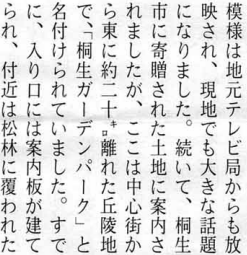 模様は地元テレビ局からも放
映され、現地でも大きな話題
になりました。続いて、桐生
市に寄贈された土地に案内さ
れましたが、ここは中心街か
ら東に約二十㌔離れた丘陵地
で、「桐生ガーデンパーク」と
名付けられていました。すで
に、入り口には案内板が建て
られ、付近は松林に覆われた